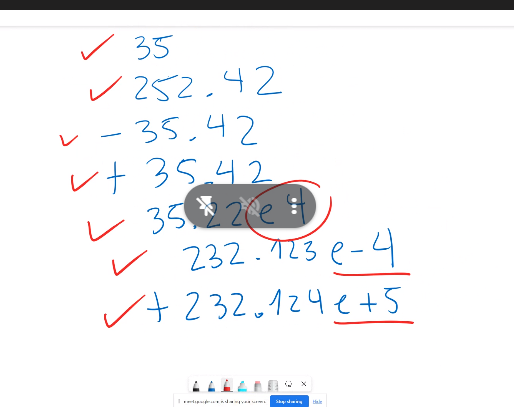 35
252.42
- 35.42
+ 35.42
35.22e4
232.123 e-4
+ 232.124 e+5
meet.google.com is sharing your screen. Stop sharing Hide